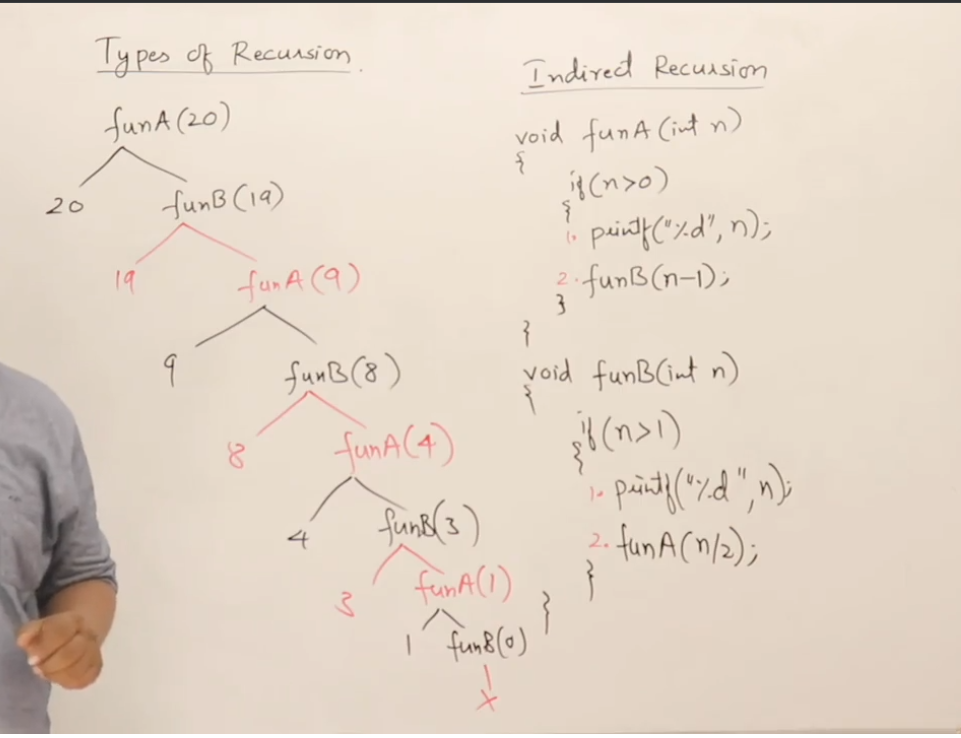 Types of Recursion
funA(20)
20 funB(19)
19 funA(9)
9 funB(8)
8 funA(4)
4 funB(3)
3 funA(1)
1 funB(0)
x
Indirect Recursion
void funA(int n)
{
if(n>0)
{
1. printf("%d", n);
2. funB(n-1);
}
}
void funB(int n)
{
if(n>1)
{
1. printf("%d", n);
2. funA(n/2);
}
}